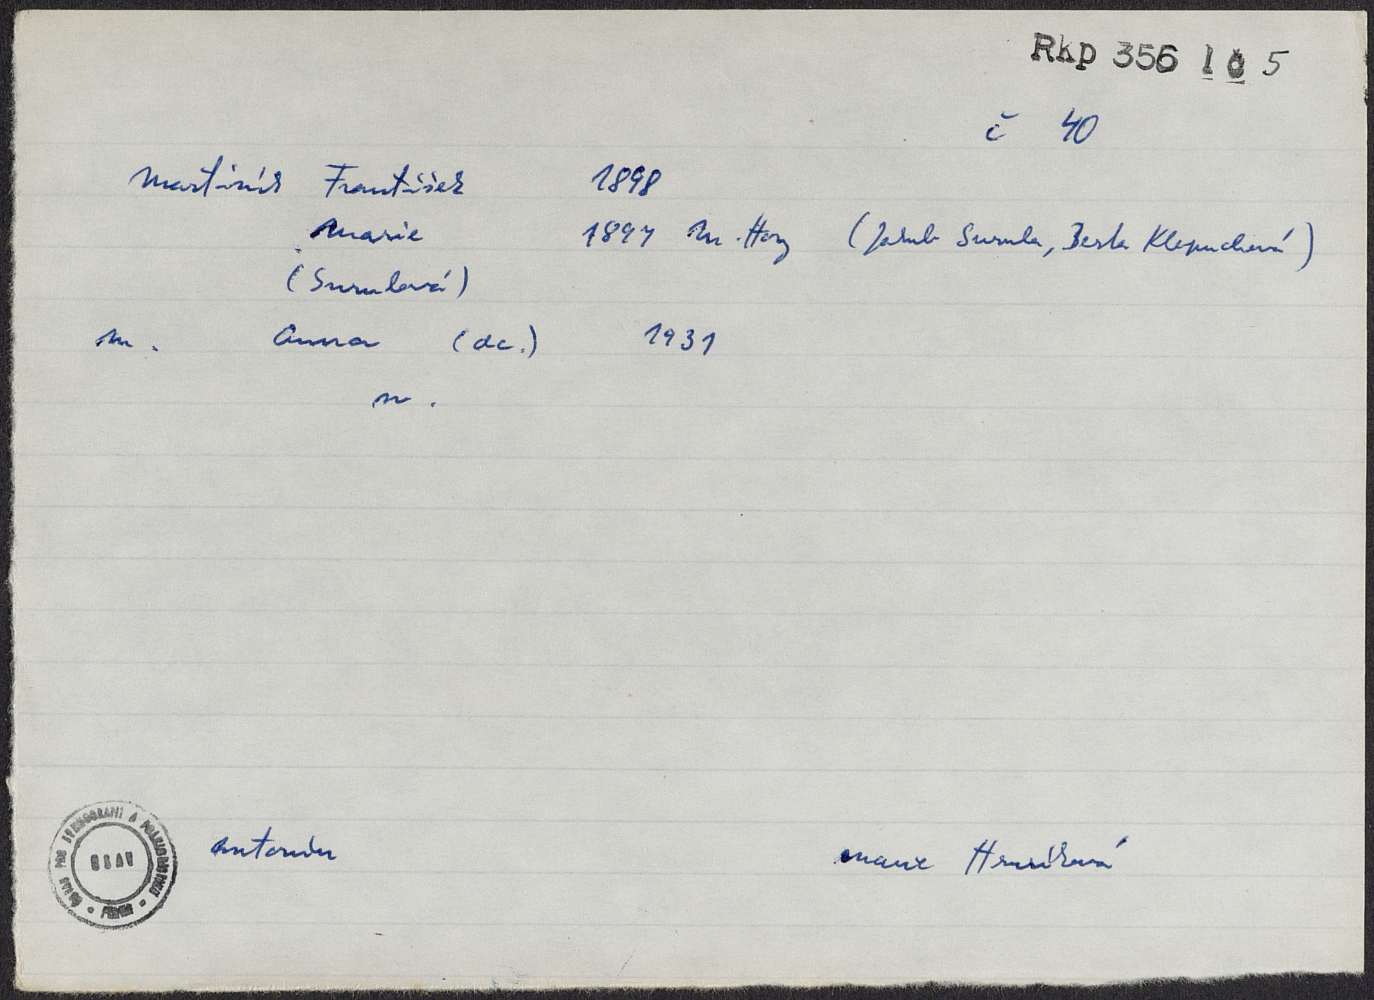 Rkp 356 I č 5
č 40
Martinák František 1898
Marie 1897 M. Hory (Jakub Surula, Berta Klepuchová)
(Surulová)
m. Anna (dc.) 1931
m.
ÚSTAV PRO ETNOGRAFII A FOLKLORISTIKU
ČSAV
Antonín
Marie Hrušková